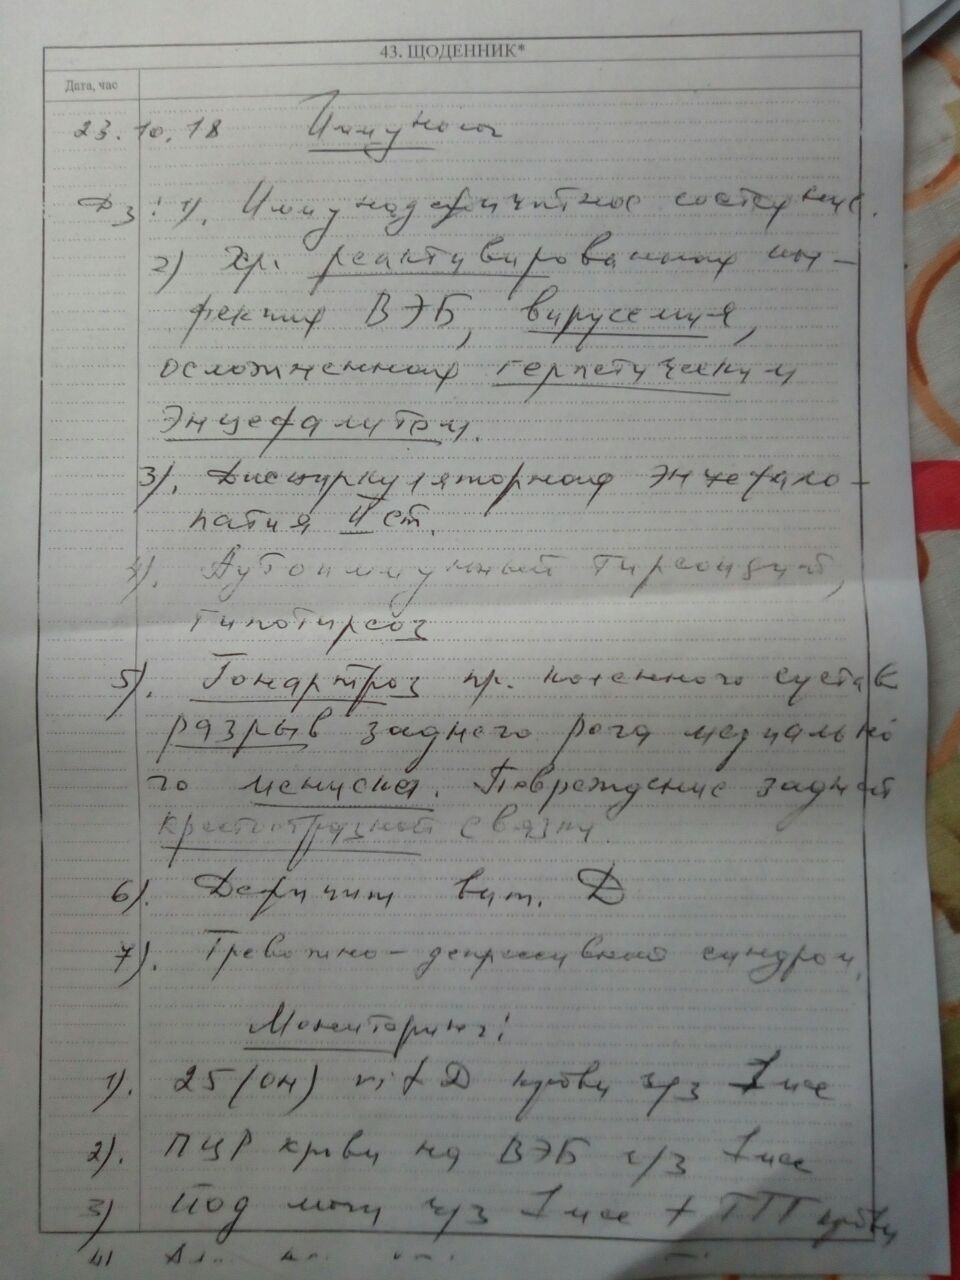 43. ЩОДЕННИК*
Дата, час
23.10.18 Иммунолог
Дз: 1). Иммунодефицитное состояние.
2) Хр. реактивированная ин-
фекция ВЭБ, вирусемия,
осложненная герпетическим
энцефалитом.
3). Дисциркуляторная энцефало-
патия II ст.
4). Аутоиммунный тиреоидит,
гипотиреоз
5). Гонартроз пр. коленного сустав
разрыв заднего рога медиально
го мениска. Повреждение задней
крестообразной связки.
6). Дефицит вит. D
7). Тревожно-депрессивный синдром.
Мониторинг:
1). 25(OH) vit D крови ч/з 1 мес
2). ПЦР крови на ВЭБ ч/з 1 мес
3) Йод мочи ч/з 1 мес + ТТГ крови
4)